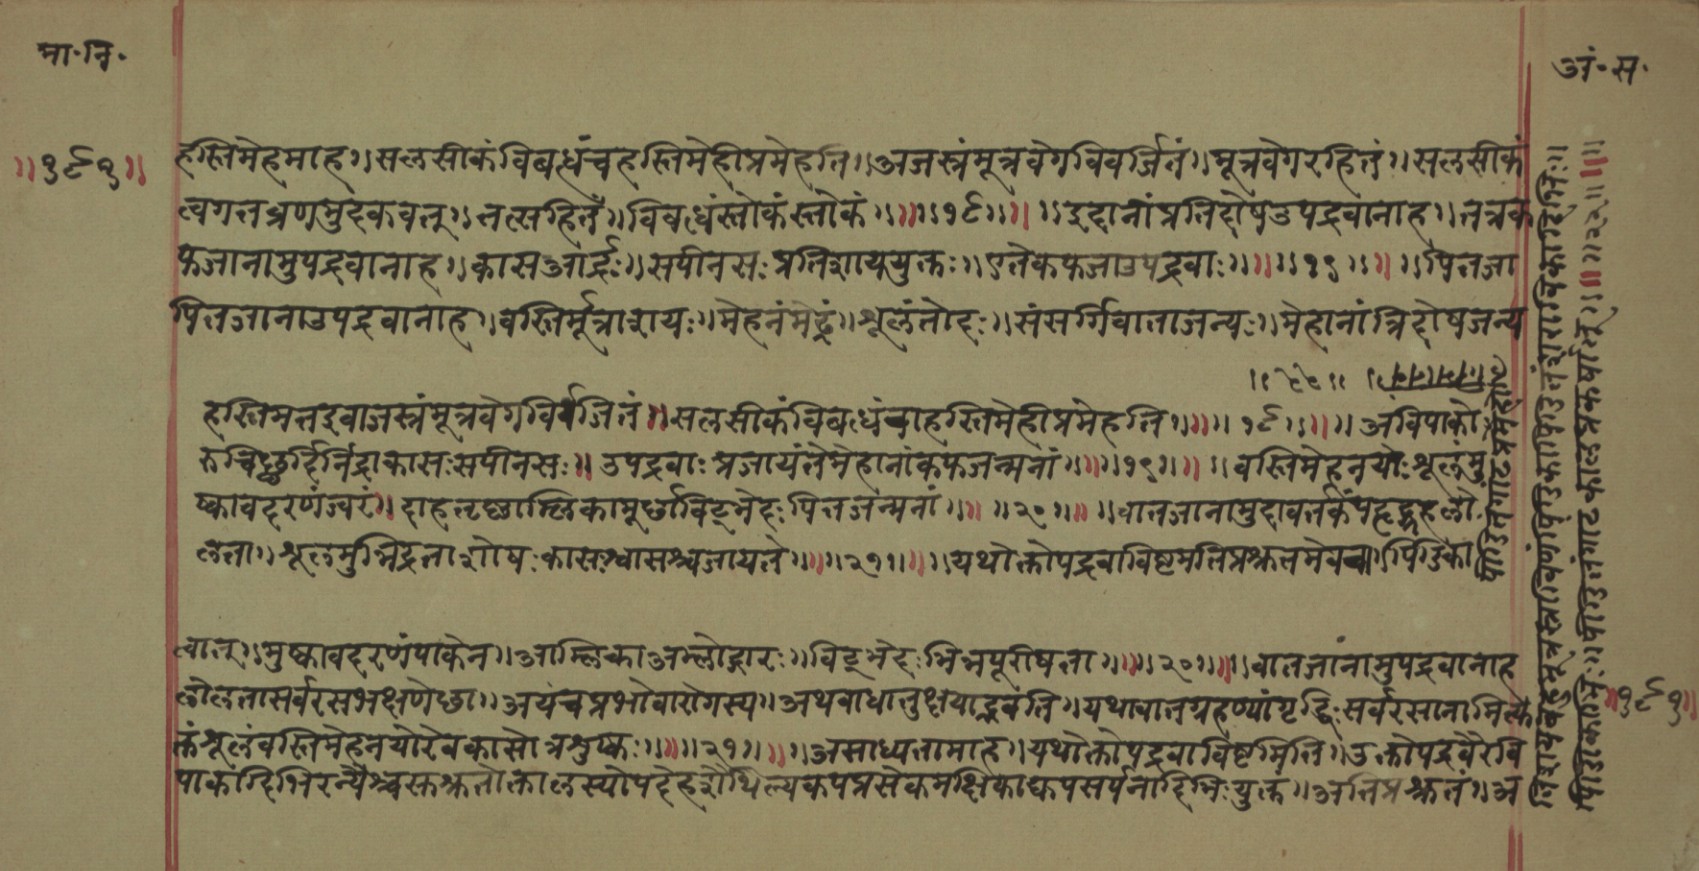 मा·नि·
अं·स·
॥१९१॥
हस्तिमेहमाह॥सलसीकंविबद्धंचहस्तिमेहीप्रमेहति॥अजस्रंमूत्रवेगविवर्जितं॥मूत्रवेगरहितं॥सलसीकं
त्वगतव्रणमुदकवत्॥तत्सहितं॥विबद्धंस्तोकंस्तोकं॥॥१८॥॥इदानींप्रतिदोषउपद्रवानाह॥तत्रक
फजानामुपद्रवानाह॥कासआर्द्रः॥सपीनसःप्रतिशाययुक्तः॥एतेकफजाउपद्रवाः॥॥१९॥॥पित्तजा
पित्तजानाउपद्रवानाह॥वस्तिर्मूत्राशयः॥मेहनंमेढ्रं॥शूलंतोदः॥संसर्गिवाताजन्यः॥मेहानांत्रिदोषजन्य
हस्तिमत्तइवाजस्रंमूत्रवेगविवर्जितं॥सलसीकंविबद्धंचाहस्तिमेहीप्रमेहति॥॥१८॥॥अविपाको
रुचिश्छर्दिर्निद्राकासःसपीनसः॥उपद्रवाःप्रजायंतेमेहानांकफजन्मनां॥॥१९॥॥वस्तिमेहनयोःशूलंमु
ष्कावदरणंज्वरं॥दाहतृष्णाम्लिकामूर्छाविड्भेदःपित्तजन्मनां॥॥२०॥॥वातजानामुदावर्तकंपहृद्ग्रहलो
लता॥शूलमुन्निद्रताशोषःकासःश्वासश्चजायते॥॥२१॥॥यथोक्तोपद्रवाविष्टमतिप्रस्रुतमेवच॥पिडिका
पीडितंगाढप्रमेहो
त्वात्॥मुष्कावदरणंपाकेन॥आम्लिकाअम्लोद्गारः॥विड्भेदःभिन्नपूरीषता॥॥२०॥॥वातजांनामुपद्रवानाह
लोलतासर्वरसभक्षणेछा॥अयंचप्रभावोरोगस्य॥अथवाधातुक्षयाद्भवति॥यथावातग्रहण्यांगृद्धिःसर्वरसानामित्यु
क्तंशूलंवस्तिमेहनयोरेवकासोत्रशुष्कः॥॥२१॥॥असाध्यतामाह॥यथोक्तोपद्रवाविष्टमिति॥उक्तोपद्रवैरवि
पाकादिभिरन्यैश्चरक्तस्रुताक्तालस्योपदेहशैथिल्यकफप्रसेकमक्षिकाद्युपसर्पनादिभिःयुक्तं॥अतिप्रस्रुतं॥अ
॥१९१॥